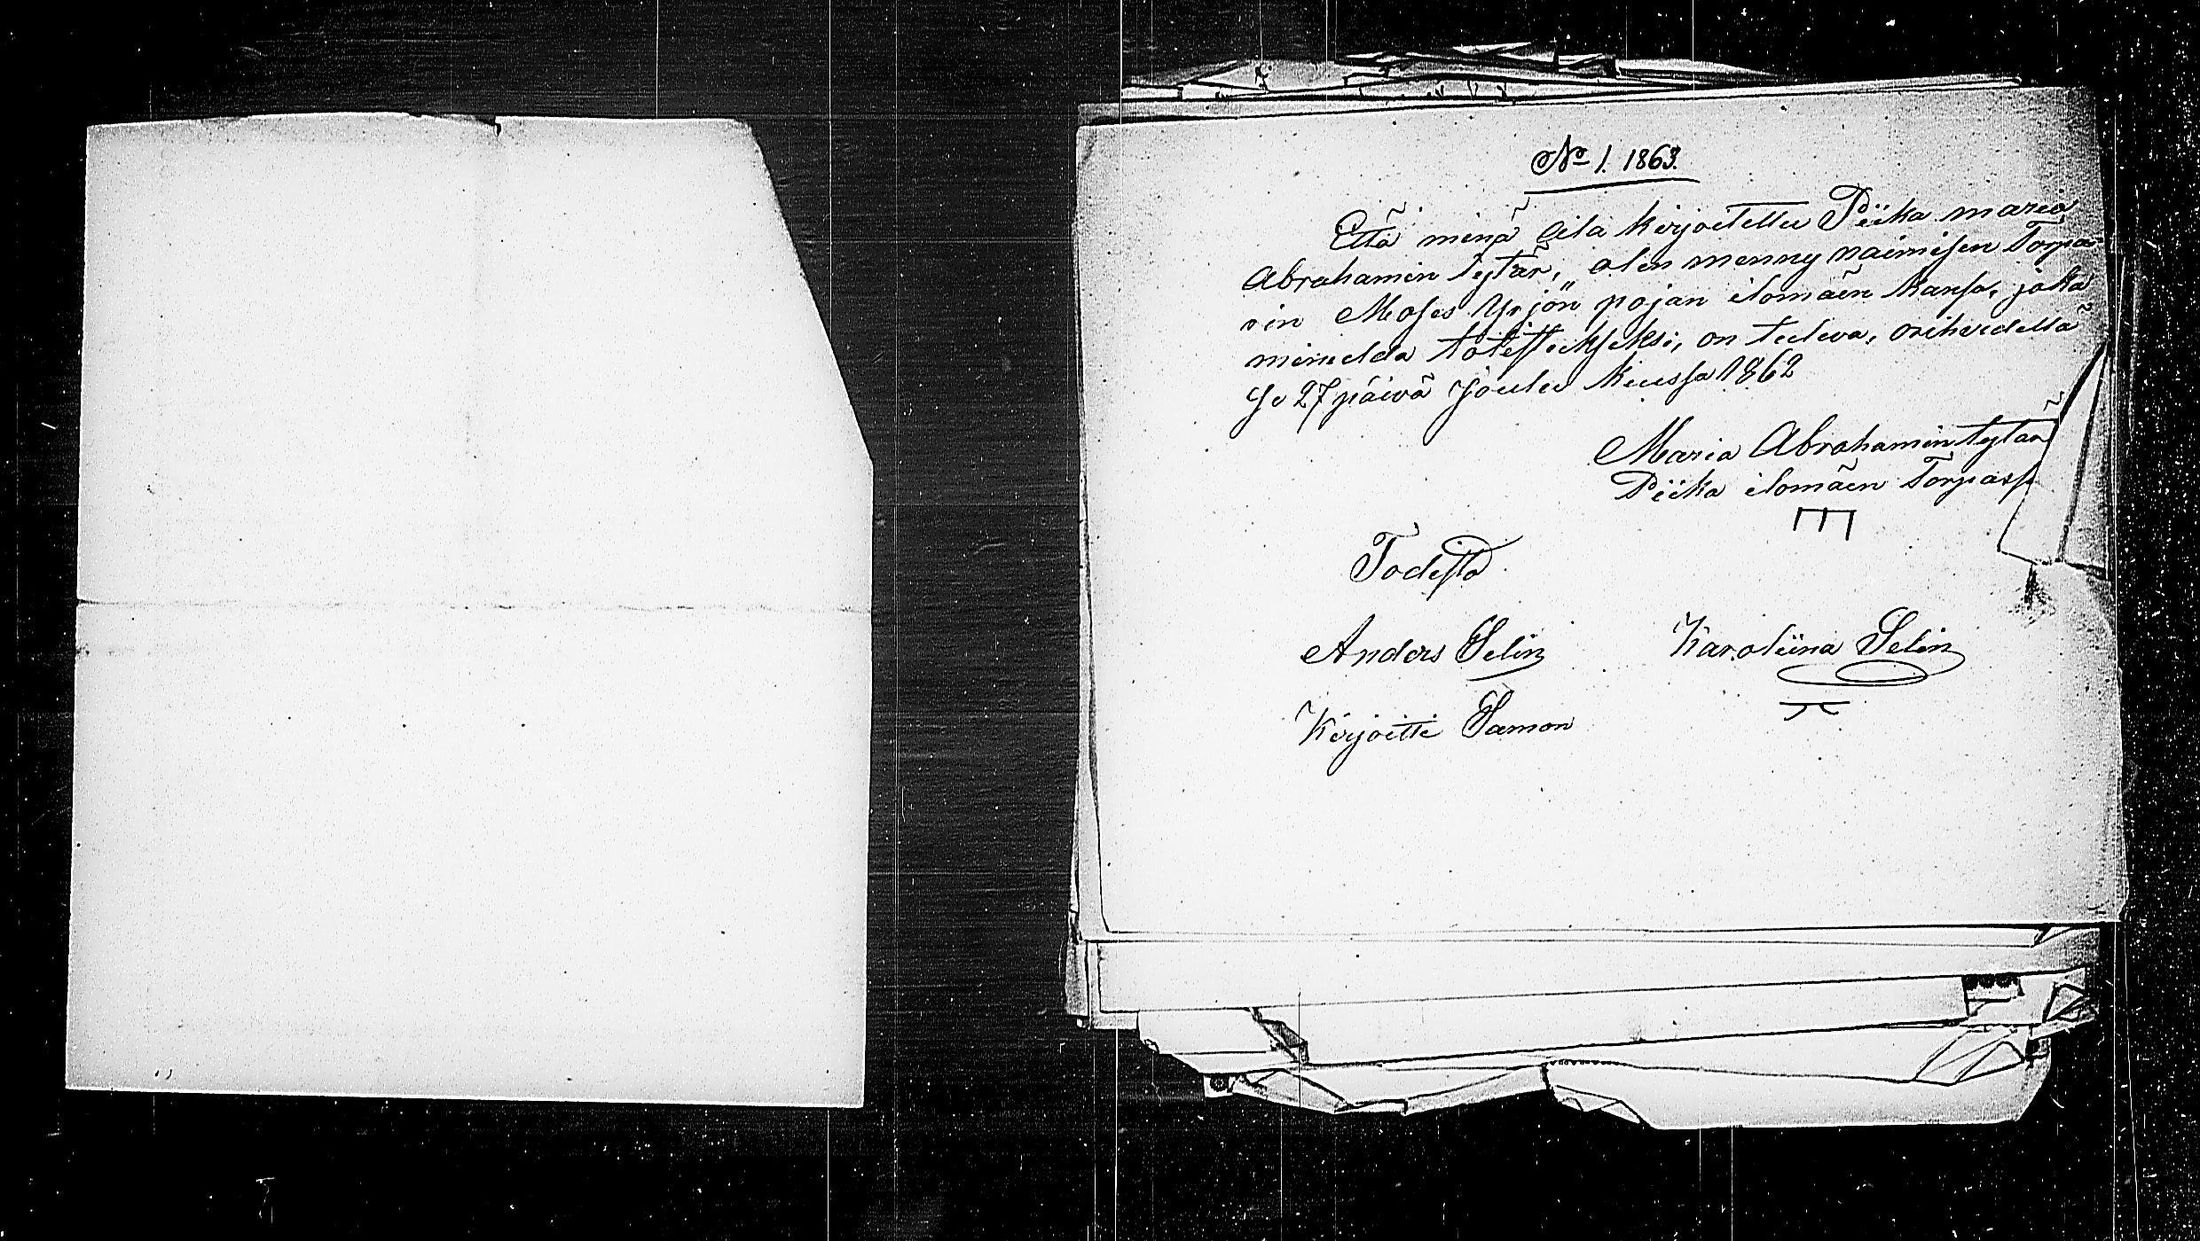 No 1. 1863.
Että minä Eila kirjoitettu Piika maria
Abrahamin tytär, olen menny naimisen Torpa-
rin Moses Yrjön pojan ilomäen kansa, joka
minulda totistukseksi, on tuleva, orihvedellä
Se 27 päivä Joulu kuussa 1862
Maria Abrahamin tytär
Piika ilomäen Torpassa
Todista
Anders Selin Karoliina Selin
Kirjoitti Samon